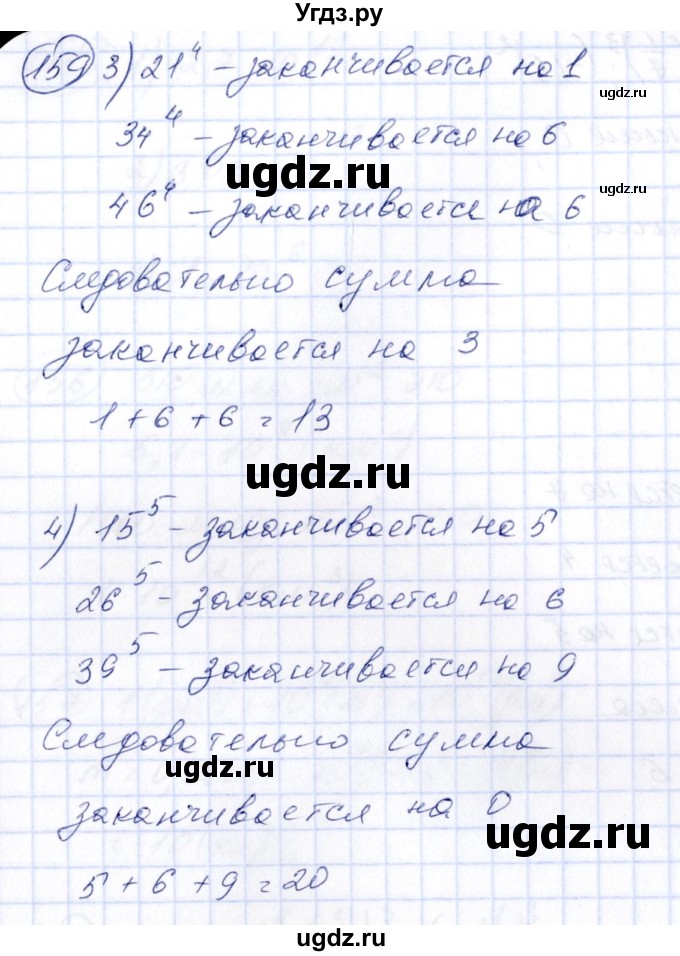 Угдз.ру
159 3) 21⁴ – заканчивается на 1
ugdz.ru
34⁴ – заканчивается на 6
ugdz.ru
ugdz.ru
46⁴ – заканчивается на 6
Следовательно сумма
заканчивается на 3
1 + 6 + 6 = 13
ugdz.ru
4) 15⁵ – заканчивается на 5
26⁵ – заканчивается на 6
39⁵ – заканчивается на 9
Следовательно сумма
ugdz.ru
заканчивается на 0
ugdz.ru
5 + 6 + 9 = 20
ugdz.ru